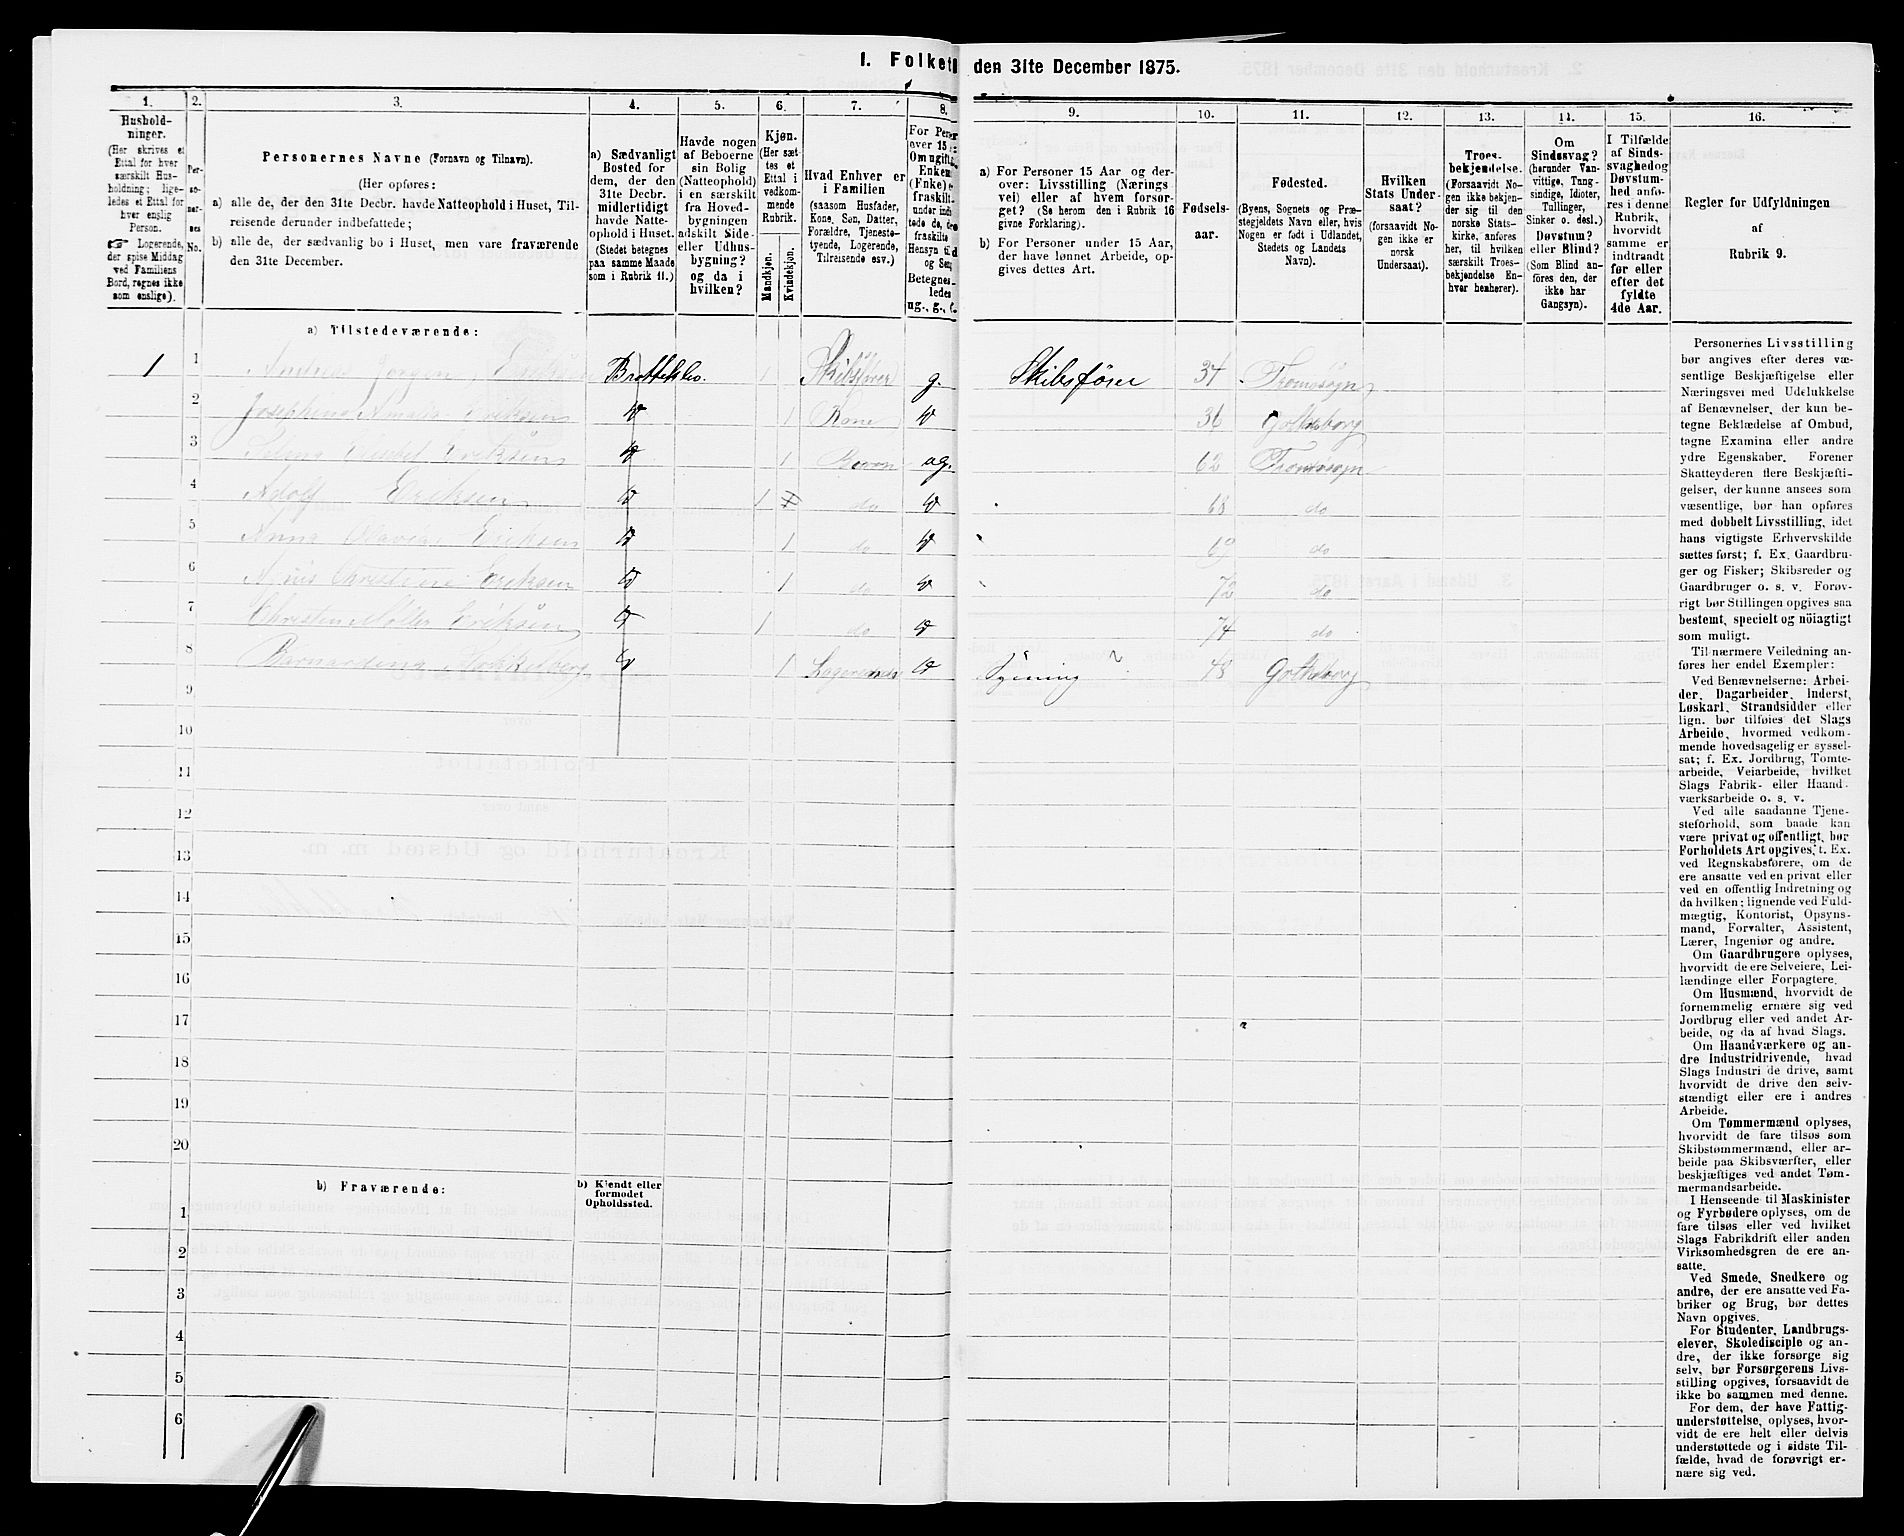 1. Folket den 31te December 1875.
1. 2. 3. 4. 5. 6. 7. 8. 9. 10. 11. 12. 13. 14. 15. 16.
Hushold-
ninger.
(Her skrives et
Ettal for hver
særskilt Hus-
holdning; lige-
ledes et Ettal for
hver enslig
Person.
☞ Logerende,
der spise Middag
ved Familiens
Bord, regnes ikke
som enslige).
Per-
so-
ner-
nes
No.
Personernes Navne (Fornavn og Tilnavn).
(Her opføres:
a) alle de, der den 31te Decbr. havde Natteophold i Huset, Til-
reisende derunder indbefattede;
b) alle de, der sædvanlig bo i Huset, men vare fraværende
den 31te December.
a) Sædvanligt
Bosted for
dem, der den
31te Decbr.
midlertidigt
havde Natte-
ophold i Huset.
(Stedet betegnes
paa samme Maade
som i Rubrik 11.)
Havde nogen
af Beboerne
sin Bolig
(Natteophold)
i en særskilt
fra Hoved-
bygningen
adskilt Side-
eller Udhus-
bygning?
og da i
hvilken?
Kjøn.
(Her sæt-
tes et
Ettal i
vedkom-
mende
Rubrik.
Mandkjøn.
Kvindekjøn.
Hvad Enhver er
i Familien
(saasom Husfader,
Kone, Søn, Datter,
Forældre, Tjeneste-
tyende, Logerende,
Tilreisende osv.)
For Pers
over 15
Om ugift
Enken
(Fnke) e
fraskilt
Betegnes
ledes
ug., g., f.
a) For Personer 15 Aar og der-
over: Livsstilling (Nærings-
vei) eller af hvem forsør-
get? (Se herom den i Rubrik 16
givne Forklaring).
b) For Personer under 15 Aar,
der have lønnet Arbeide, op-
gives dettes Art.
Fødsels-
aar.
Fødested.
(Byens, Sognets og Præ-
stegjeldets Navn eller, hvis
Nogen er født i Udlandet,
Stedets og Landets
Navn).
Hvilken
Stats Under-
saat?
(forsaavidt No-
gen ikke er
norsk
Undersaat).
Troes-
bekjendelse.
(Forsaavidt No-
gen ikke bekjen-
der sig til den
norske Stats-
kirke, anføres
her, til hvilken
særskilt Troes-
bekjendelse En-
hver henhører).
Om
Sindssvag?
(herunder Van-
vittige, Tung-
sindige, Idioter,
Tullinger,
Sinker o. desl.)
Døvstum?
eller Blind?
(Som Blind an-
føres den, der
ikke har
Gangsyn).
I Tilfælde
af Sinds-
svaghedog
Døvstum-
hed anfø-
res i denne
Rubrik,
hvorvidt
samme er
indtraadt
før eller
efter det
fyldte
4de Aar.
Regler for Udfyldningen
af
Rubrik 9.
a) Tilstedeværende:
1 1 Andreas Jørgen Eriksen Brattekleo. 1 Skibsfører g. Skibsfører 34 Tromøsogn
2 Josephine Amalie Eriksen 1 Kone 36 Gothaborg
3 Selma Eriksen 1 Barn ug. 62 Tromøsogn
4 Adolf Eriksen 1 do 68 do
5 Anna Olavia Eriksen 1 do 69 do
6 Christine Eriksen 1 do 72 do
7 Christen Møller Eriksen 1 do 74 do
8 1 Logerende Syening 48 Gothaborg
9
10
11
12
13
14
15
16
17
18
19
20
b) Fraværende:
b) Kjendt eller
formodet
Opholdssted.
1
2
3
4
5
6
Personernes Livsstilling
bør angives efter deres væ-
sentlige Beskjæftigelse eller
Næringsvei med Udelukkelse
af Benævnelser, der kun be-
tegne Beklædelse af Ombud,
tagne Examina eller andre
ydre Egenskaber. Forener
Skatteyderen flere Beskjæfti-
gelser, der kunne ansees som
væsentlige, bør han opføres
med dobbelt Livsstilling, idet
hans vigtigste Erhvervskilde
sættes først; f. Ex. Gaardbru-
ger og Fisker; Skibsreder og
Gaardbruger o. s. v. Forøv-
rigt bør Stillingen opgives saa
bestemt, specielt og nöiagtigt
som muligt.
Til nærmere Veiledning an-
føres her endel Exempler:
Ved Benævnelserne: Arbei-
der, Dagarbeider, Inderst,
Løskarl, Strandsidder eller
lign. bør tilføies det Slags
Arbeide, hvormed vedkom-
mende hovedsagelig er syssel-
sat; f. Ex. Jordbrug, Tomte-
arbeide, Veiarbeide, hvilket
Slags Fabrik- eller Haand-
værksarbeide o. s. v.
Ved alle saadanne Tjene-
steforhold, som baade kan
være privat og offentligt, bør
Forholdets Art opgives, f. Ex.
ved Regnskabsførere, om de
ere ansatte ved en privat eller
ved en offentlig Indretning og
da hvilken; lignende ved Fuld-
mægtig, Kontorist, Opsyns-
mand, Forvalter, Assistent,
Lærer, Ingeniør og andre.
Om Gaardbrugere oplyses,
hvorvidt de ere Selveiere, Lei-
lændinge eller Forpagtere.
Om Husmænd, hvorvidt de
fornemmelig ernære sig ved
Jordbrug eller ved andet Ar-
beide, og da af hvad Slags.
Om Haandværkere og an-
dre Industridrivende, hvad
Slags Industri de drive, samt
hvorvidt de drive den selv-
stændigt eller ere i andres
Arbeide.
Om Tømmermænd oplyses,
hvorvidt de fare tilsøs som
Skibstømmermænd, eller ar-
beide paa Skibsværfter, eller
beskjæftiges ved andet Tøm-
mermandsarbeide.
I Henseende til Maskinister
og Fyrbødere oplyses, om de
fare tilsøs eller ved hvilket
Slags Fabrikdrift eller anden
Virksomhedsgren de ere an-
satte.
Ved Smede, Snedkere og
andre, der ere ansatte ved Fa-
briker og Brug, bør dettes
Navn opgives.
For Studenter, Landbrugs-
elever, Skoledisciple og an-
dre, der ikke forsørge sig
selv, bør Forsørgerens Livs-
stilling opgives, forsaavidt de
ikke bo sammen med denne.
For dem, der have Fattig-
understøttelse, oplyses, hvor-
vidt de ere helt eller delvis
understøttede og i sidste Til-
fælde, hvad de forøvrigt er-
nære sig ved.